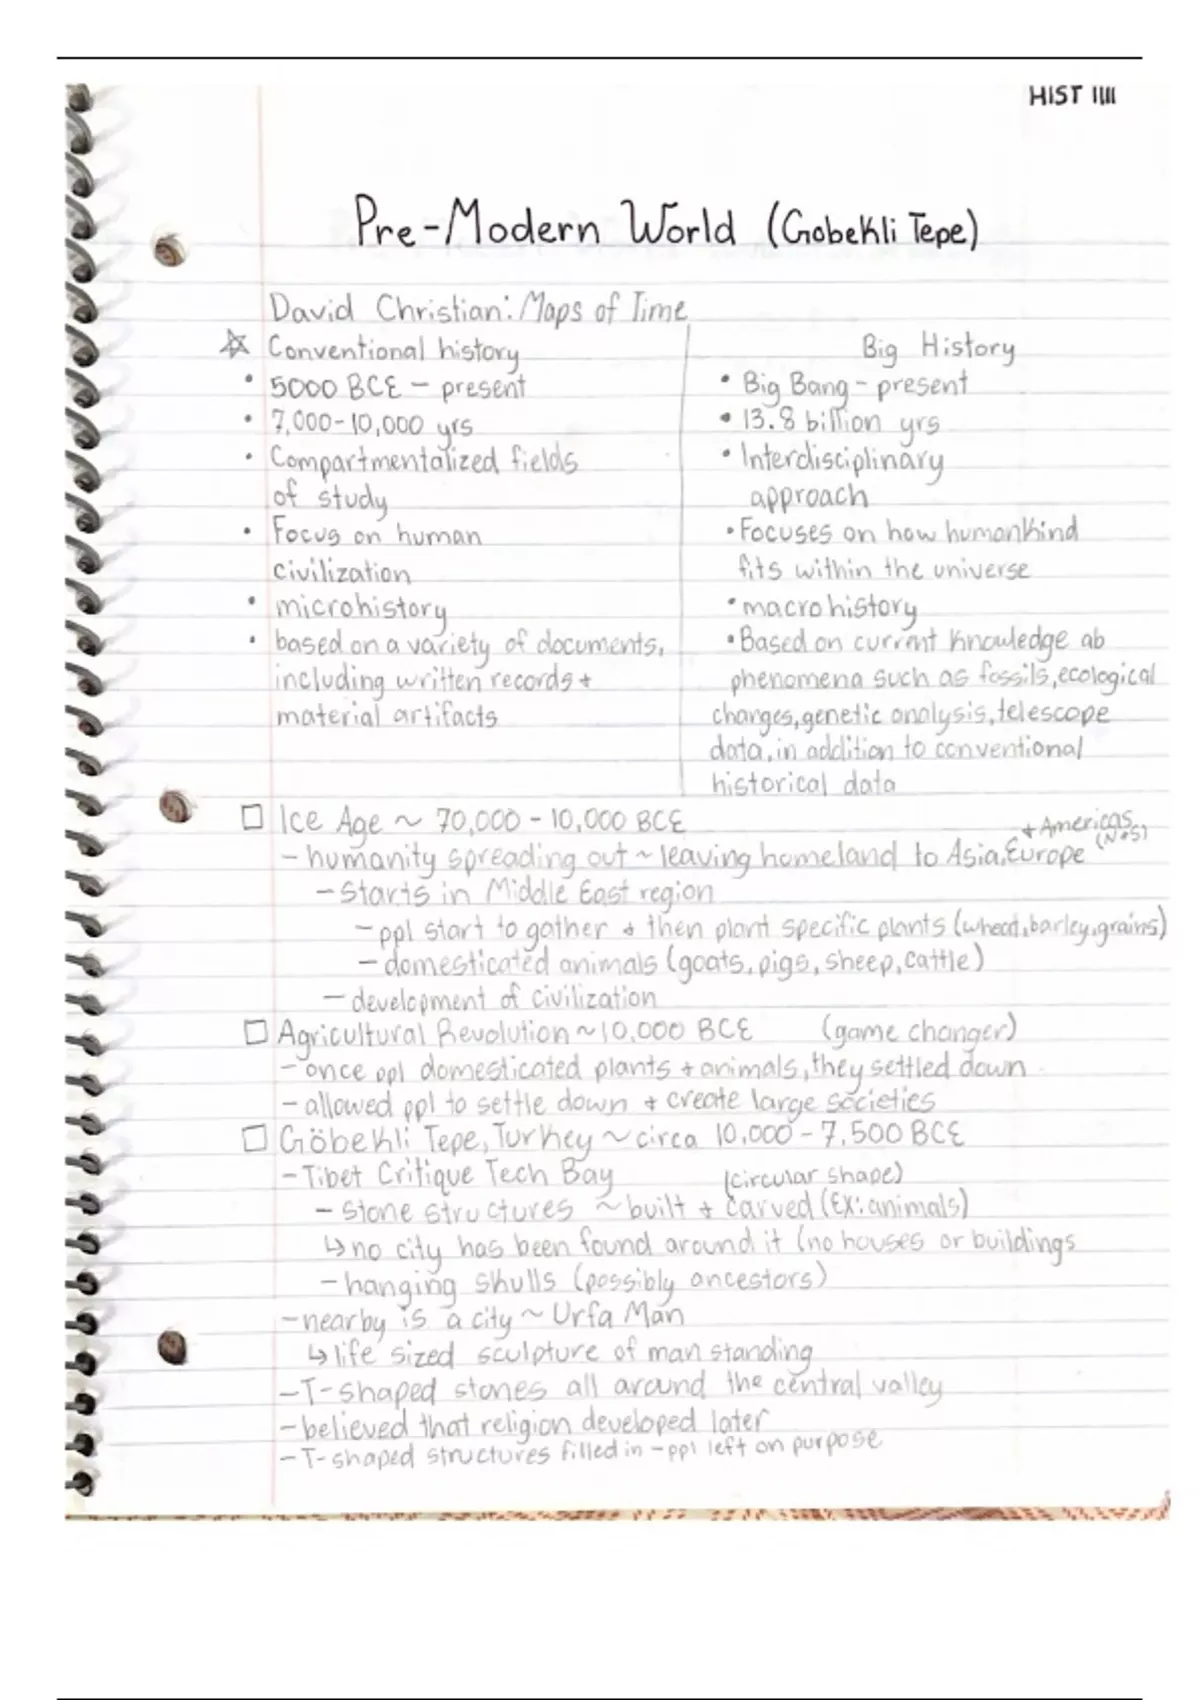 HIST 1111
Pre-Modern World (Gobekli Tepe)
David Christian: Maps of Time
☆ Conventional history
• 5000 BCE - present
• 7,000-10,000 yrs
• Compartmentalized fields
of study
• Focus on human
civilization
• microhistory
• based on a variety of documents,
including written records +
material artifacts
Big History
• Big Bang - present
• 13.8 billion yrs
• Interdisciplinary
approach
• Focuses on how humankind
fits within the universe
• macrohistory
• Based on current knowledge ab
phenomena such as fossils, ecological
changes, genetic analysis, telescope
data, in addition to conventional
historical data
□ Ice Age ~ 70,000 - 10,000 BCE
- humanity spreading out ~ leaving homeland to Asia, Europe + Americas (N+S)
- starts in Middle East region
- ppl start to gather + then plant specific plants (wheat, barley, grains)
- domesticated animals (goats, pigs, sheep, cattle)
- development of civilization
□ Agricultural Revolution ~ 10,000 BCE (game changer)
- once ppl domesticated plants + animals, they settled down
- allowed ppl to settle down + create large societies
□ Göbekli Tepe, Turkey ~ circa 10,000 - 7,500 BCE
- Tibet Critique Tech Bay
(circular shape)
- stone structures ~ built + carved (EX: animals)
↳ no city has been found around it (no houses or buildings
- hanging skulls (possibly ancestors)
- nearby is a city ~ Urfa Man
↳ life sized sculpture of man standing
- T-shaped stones all around the central valley
- believed that religion developed later
- T-shaped structures filled in - ppl left on purpose